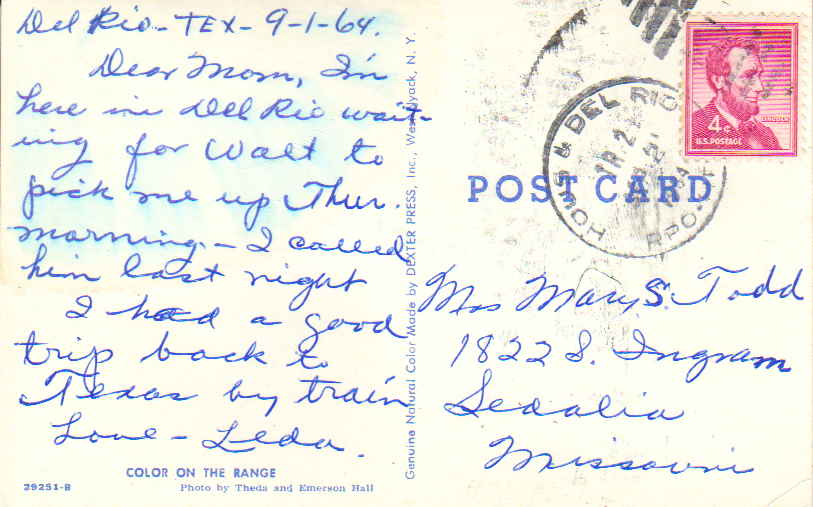 Del Rio - TEX - 9-1-64.
Dear Mom, I'm
here in Del Rio wait-
ing for Walt to
pick me up Thur.
morning. - I called
him last night
I had a good
trip back to
Texas by train
Love - Leda.
COLOR ON THE RANGE
29251-B
Photo by Theda and Emerson Hall
Genuine Natural Color Made by DEXTER PRESS, Inc., West Nyack, N. Y.
HOUS & DEL RIO
TR. 2
RPO
4¢
LINCOLN
U.S. POSTAGE
POST CARD
Mrs Mary S. Todd
1822 S. Ingram
Sedalia
Missouri